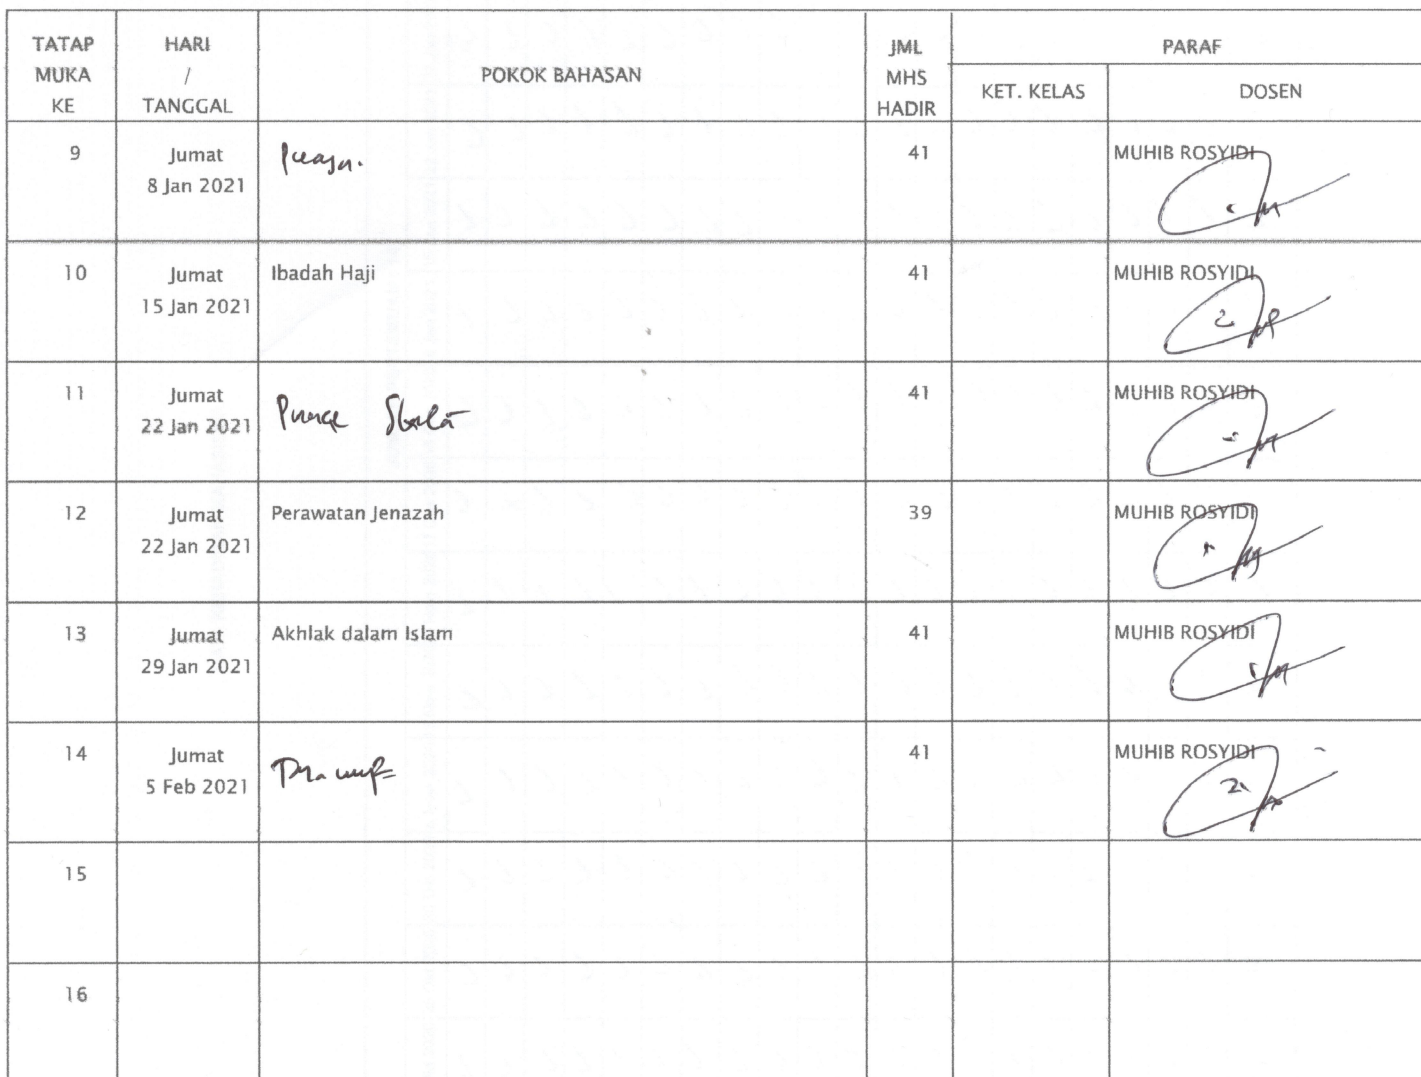 TATAP MUKA KE HARI / TANGGAL POKOK BAHASAN JML MHS HADIR PARAF
KET. KELAS DOSEN
9 Jumat 8 Jan 2021 41 MUHIB ROSYIDI
10 Jumat 15 Jan 2021 Ibadah Haji 41 MUHIB ROSYIDI
11 Jumat 22 Jan 2021 41 MUHIB ROSYIDI
12 Jumat 22 Jan 2021 Perawatan Jenazah 39 MUHIB ROSYIDI
13 Jumat 29 Jan 2021 Akhlak dalam Islam 41 MUHIB ROSYIDI
14 Jumat 5 Feb 2021 41 MUHIB ROSYIDI
15
16